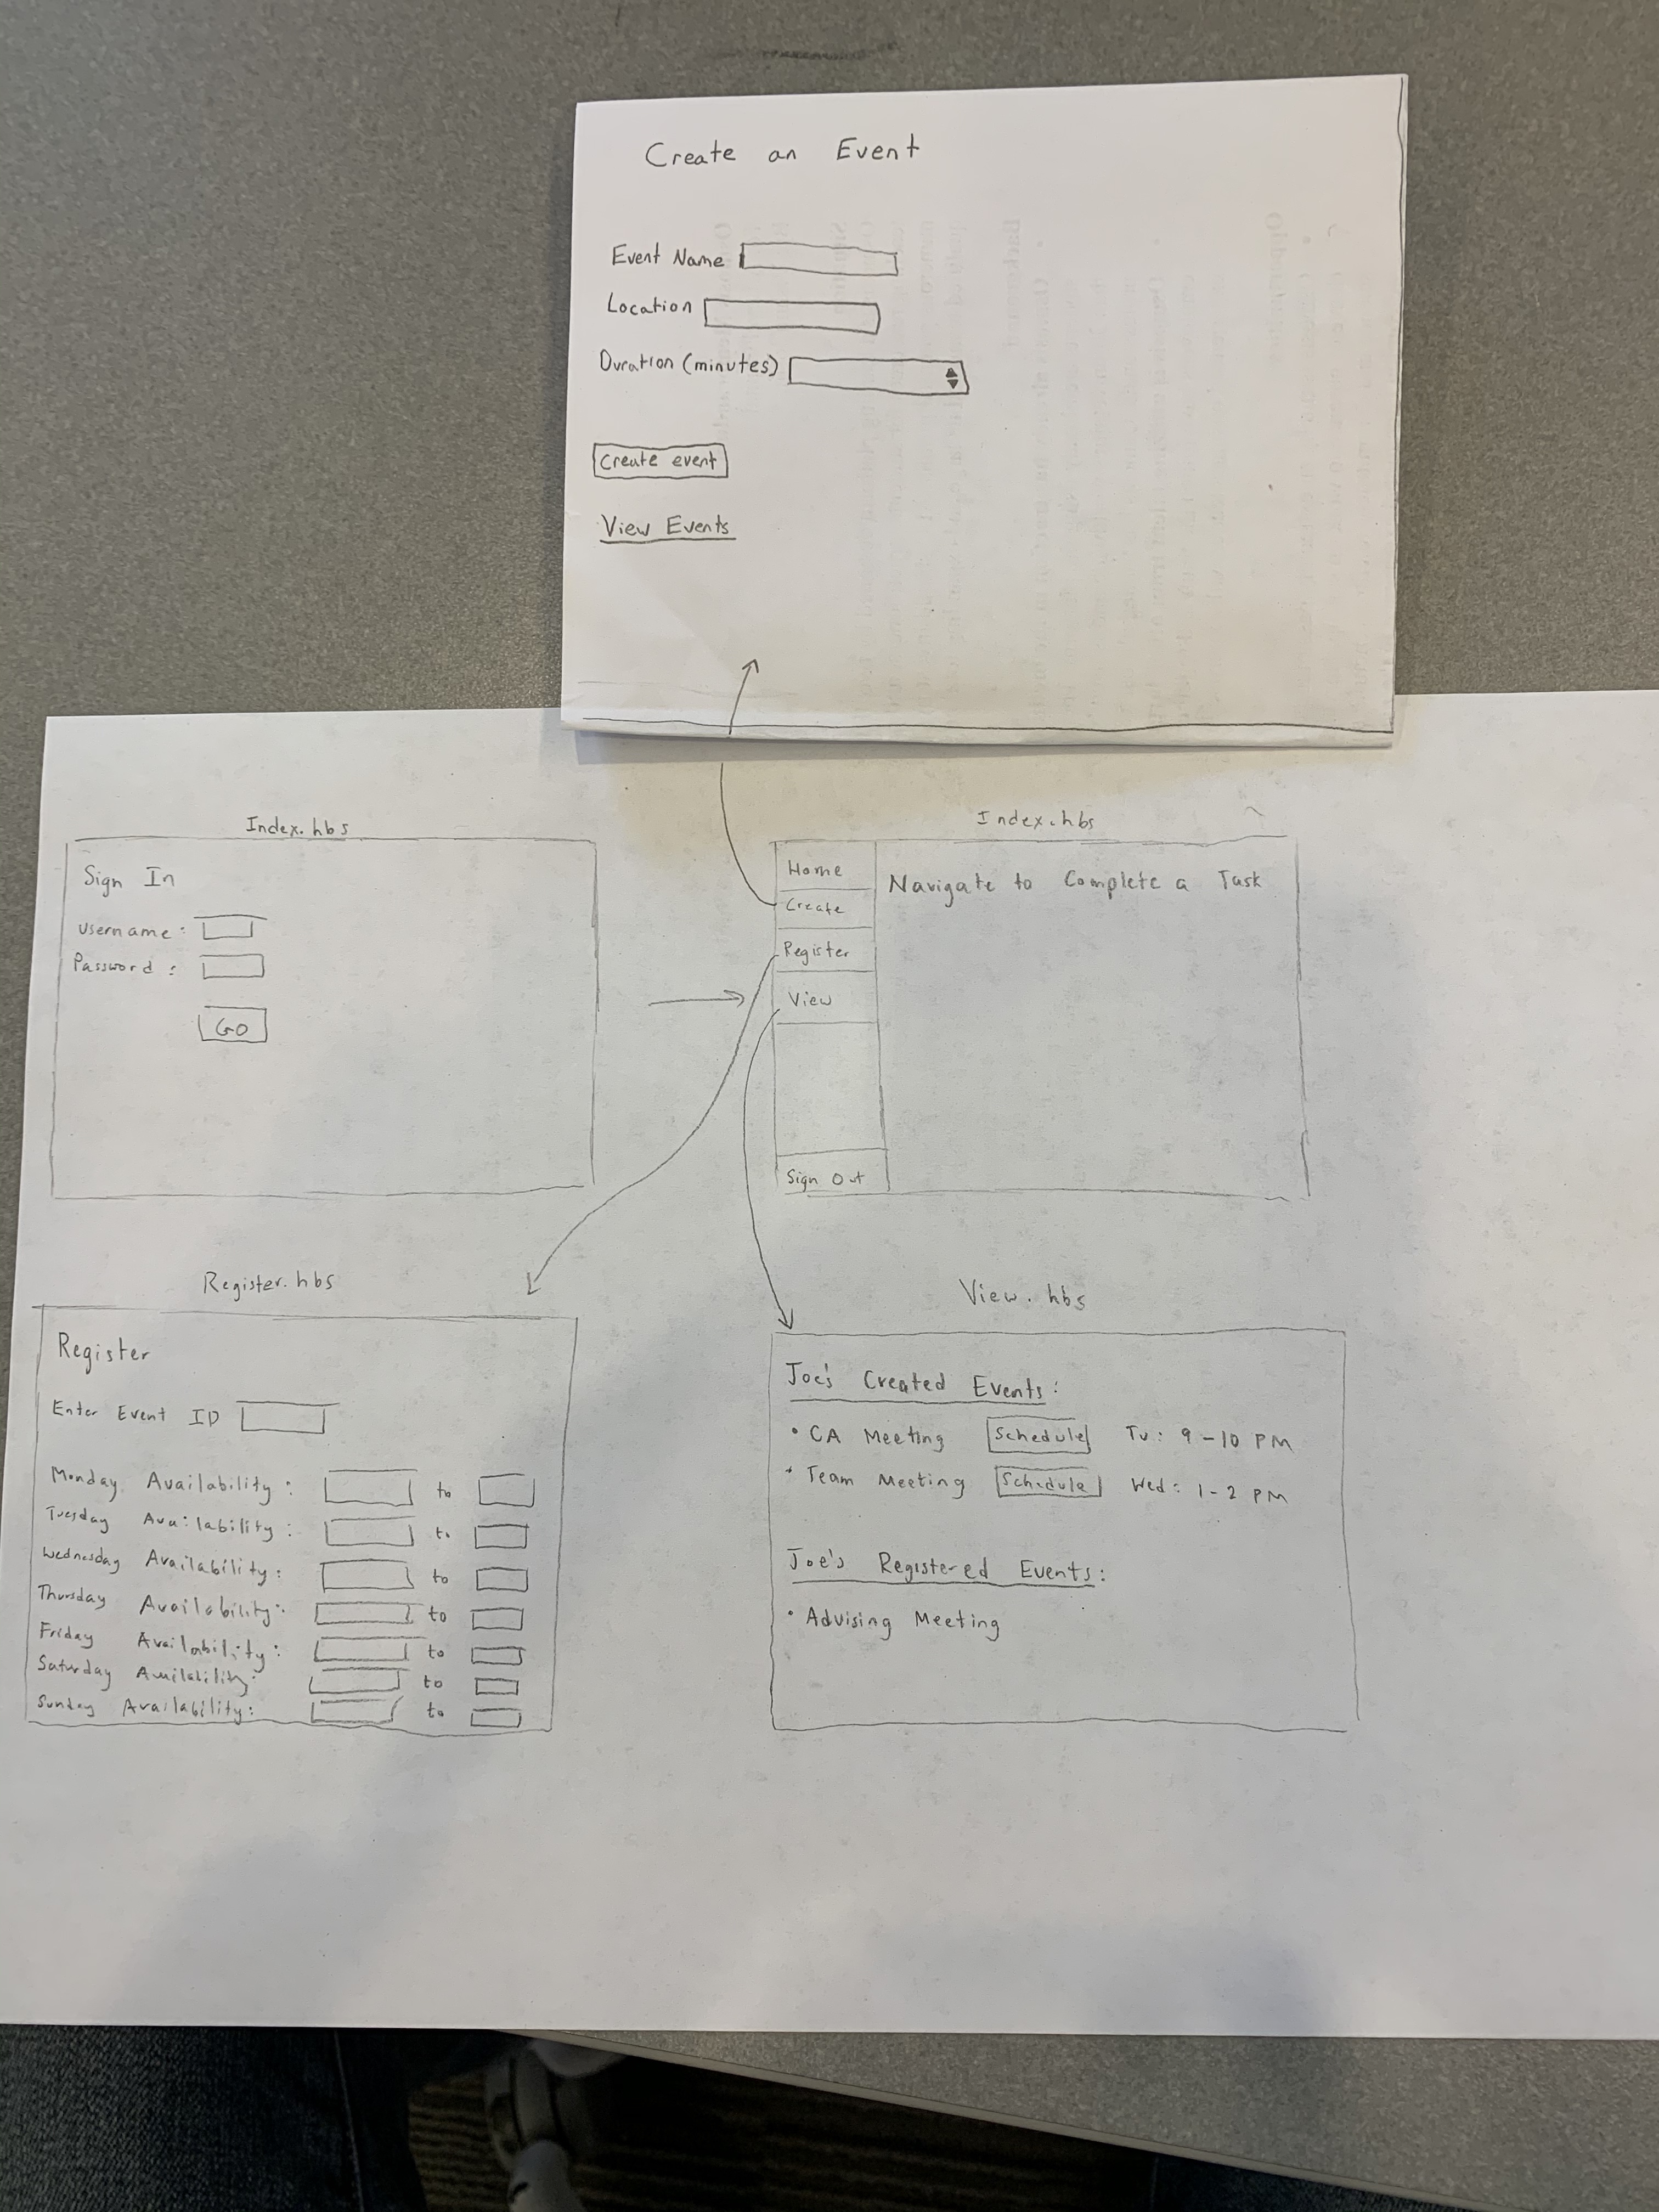 Create an Event
Event Name
Location
Duration (minutes)
Create event
View Events
Index.hbs
Sign In
Username:
Password:
GO
Index.hbs
Home
Create
Register
View
Sign Out
Navigate to Complete a Task
Register.hbs
Register
Enter Event ID
Monday Availability: to
Tuesday Availability: to
Wednesday Availability: to
Thursday Availability: to
Friday Availability: to
Saturday Availability: to
Sunday Availability: to
View.hbs
Joe's Created Events:
• CA Meeting Schedule Tu: 9-10 PM
• Team Meeting Schedule Wed: 1-2 PM
Joe's Registered Events:
• Advising Meeting